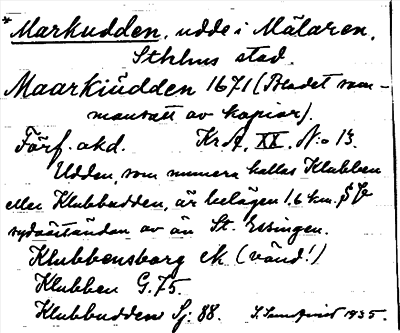 *Markudden, udde i Mälaren,
Sthlms stad.
Maarkiüdden 1671 (Bladet sam-
mansatt av kopior).
Förf. okd. Kr A, XX. N:o 13.
Udden, som numera kallas Klubben
eller Klubbudden, är belägen 1,6 km.
sydväständan av ön St. Essingen.
Klubbensborg ek (vänd!)
Klubben G. 75.
Klubbudden Sj: 88. 1935.